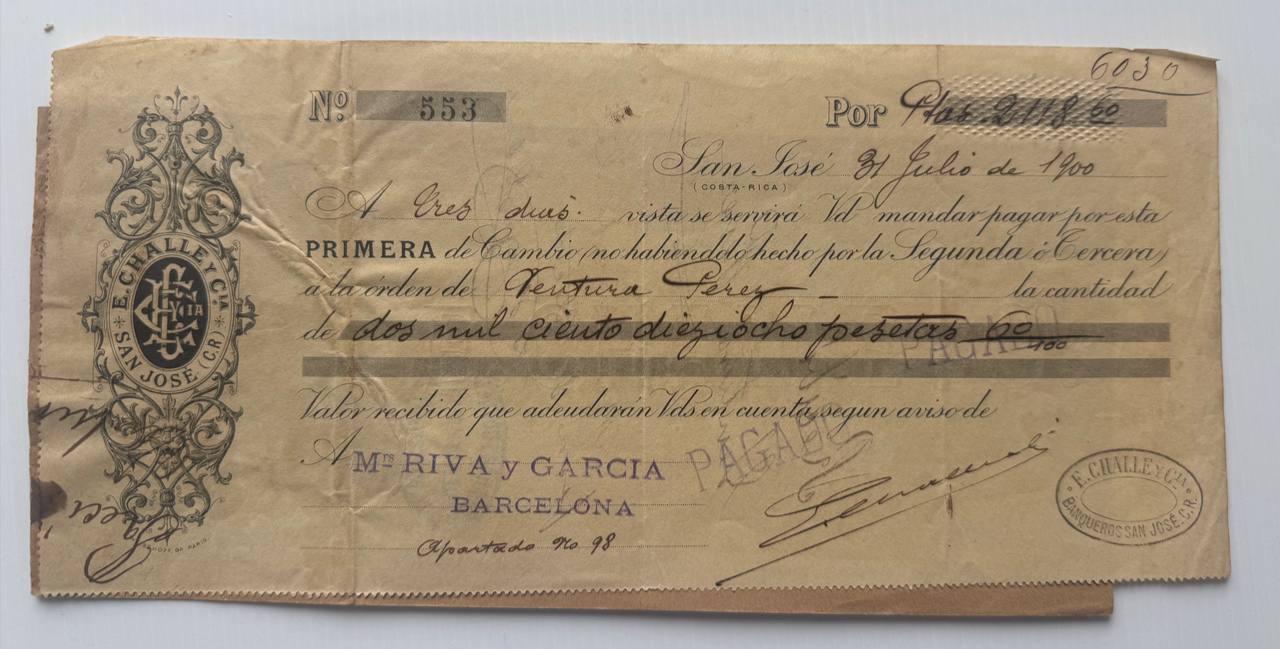 6030
Nº 553 Por Ptas 2118.60
San José 31 Julio de 1900
(COSTA-RICA)
A tres dias. vista se servirá Vd mandar pagar por esta
PRIMERA de Cambio (no habiendolo hecho por la Segunda ó Tercera)
a la órden de Ventura Perez la cantidad
de dos mil ciento dieziocho pesetas 60/100
PAGADO
Valor recibido que adeudarán Vds en cuenta, segun aviso de
A Mrs RIVA y GARCIA
BARCELONA
Apartado No 98
PAGADO
E. CHALLE Y CIA
BANQUEROS SAN JOSÉ. C.R.
E. CHALLE Y CIA
ECH YCIA
SAN JOSÉ (C.R.)